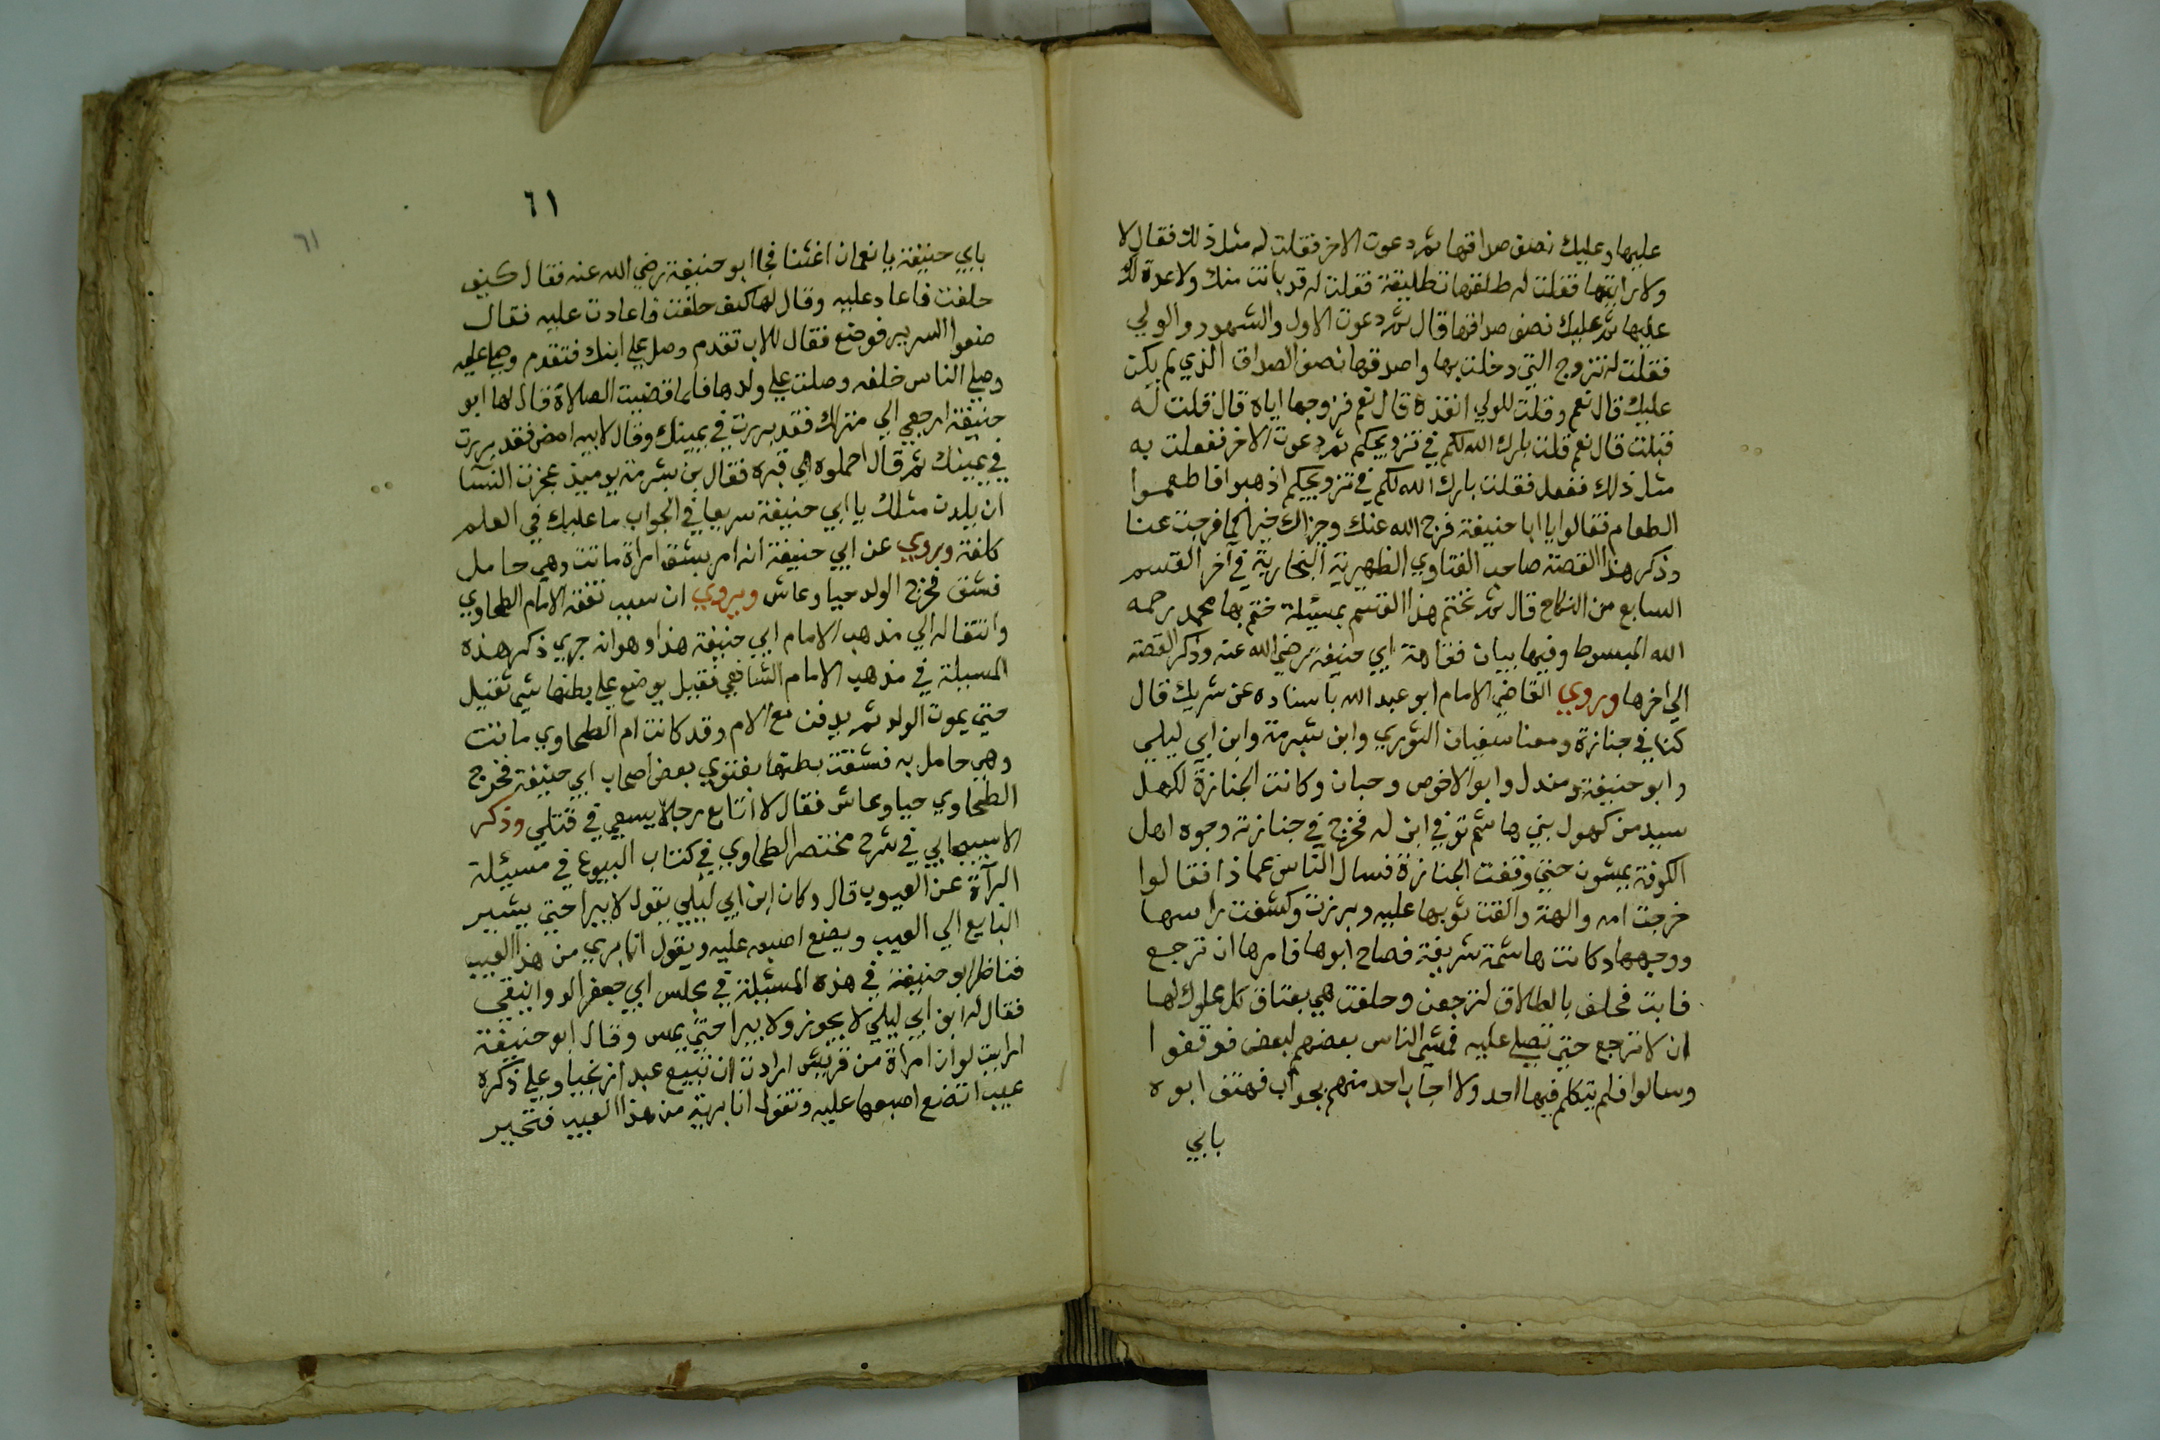 عليها وعليك نصف صداقها ثم دعوت الاخر فقلت له مثل ذلك فقال لا
ولا رايتها فقلت له طلقها تطليقة فقلت له قد بانت منك ولا عدة لك
عليها ثم عليك نصف صداقها قال ثم دعوت الاول والشهود والولي
فقلت له تتزوج التي دخلت بها واصدقها نصف الصداق الذي لم يكن
عليك قال نعم وقلت للولي انفذه قال نعم فزوجها اياه قال قلت له
قبلت قال نعم قلت بارك الله لكم في تزويجكم ثم دعوت الاخر ففعلت به
مثل ذلك ففعل فقلت بارك الله لكم في تزويجكم اذهبوا فاطعموا
الطعام فقالوا يا ابا حنيفة فرج الله عنك وجزاك خيرا كما فرجت عنا
وذكر هذا القصة صاحب الفتاوي الظهيرية البخارية في آخر القسم
السابع من النكاح قال ثم نختم هذا القسم بمسئلة ختم بها محمد رحمه
الله المبسوط وفيها بيان فقاهة ابي حنيفة رضي الله عنه وذكر القصة
الي اخرها وروي القاضي الامام ابو عبد الله باسناده عن شريك قال
كنا في جنازة ومعنا سفيان الثوري وابن شبرمة وابن ابي ليلي
وابو حنيفة ومندل وابو الاخوص وحبان وكانت الجنازة لكهل
سيد من كهول بني هاشم توفي ابن له فخرج في جنازته وجوه اهل
الكوفة يمشون حتي وقفت الجنازة فسال الناس عما ذا فقالوا
خرجت امه والهة والقت ثوبها عليه وبرزت وكشفت راسها
ووجهها وكانت هاشمة شريفة فصاح ابوها فامرها ان ترجع
فابت فحلف بالطلاق لترجعن وحلفت هي بعتاق كل مملوك لها
ان لا ترجع حتي تصلي عليه فمشي الناس بعضهم لبعض فوقفوا
وسالوا فلم يتكلم فيها احد ولا اجاب احد منهم بجواب فهتف ابوه
بابي
٦١
٦١
بابي حنيفة يا نعمان اغثنا فجا ابو حنيفة رضي الله عنه فقال كيف
حلفت فاعاد عليه وقال لها كيف حلفت فاعادت عليه فقال
ضعوا السرير فوضع فقال للاب تقدم وصل علي ابنك فتقدم وصلي عليه
وصلي الناس خلفه وصلت علي ولدها فلما قضيت الصلاة قال لها ابو
حنيفة ارجعي الي منزلك فقد بررت في يمينك وقال لابيه امض فقد بررت
في يمينك ثم قال احملوه الي قبره فقال بن شبرمة يوميذ عجزت النسا
ان يلدن مثلك يا ابي حنيفة سريعا في الجواب ما عليك في العلم
كلفة وروي عن ابي حنيفة انه امر بشق امراة ماتت وهي حامل
فشق فخرج الولد حيا وعاش ويروي ان سبب تفقه الامام الطحاوي
وانتقاله الي مذهب الامام ابي حنيفة هذا وهو انه جري ذكر هذه
المسيلة في مذهب الامام الشافعي فقيل يوضع علي بطنها شي ثقيل
حتي يموت الولد ثم يدفن مع الام وقد كانت ام الطحاوي ماتت
وهي حامل به فشقت بطنها بفتوي بعض اصحاب ابي حنيفة فخرج
الطحاوي حيا وعاش فقال لا اتابع رجلا يسعي في قتلي وذكر
الاسبيجابي في شرح مختصر الطحاوي في كتاب البيوع في مسيئلة
البرآة عن العيوب قال وكان ابن ابي ليلي يقول لا يبرا حتي يشير
البايع الي العيب ويضع اصبعه عليه ويقول انا بري من هذا العيب
فناظر ابو حنيفة في هذه المسئيلة في مجلس ابي جعفر الدوانيقي
فقال له ابن ابي ليلي لا يجوز ولا يبرا حتي يمس وقال ابو حنيفة
ارايت لو ان امراة من قريش ارادت ان تبيع عبدا زنجيا وعلي ذكره
عيب اتضع اصبعها عليه وتقول انا برية من هذا العيب فتحير